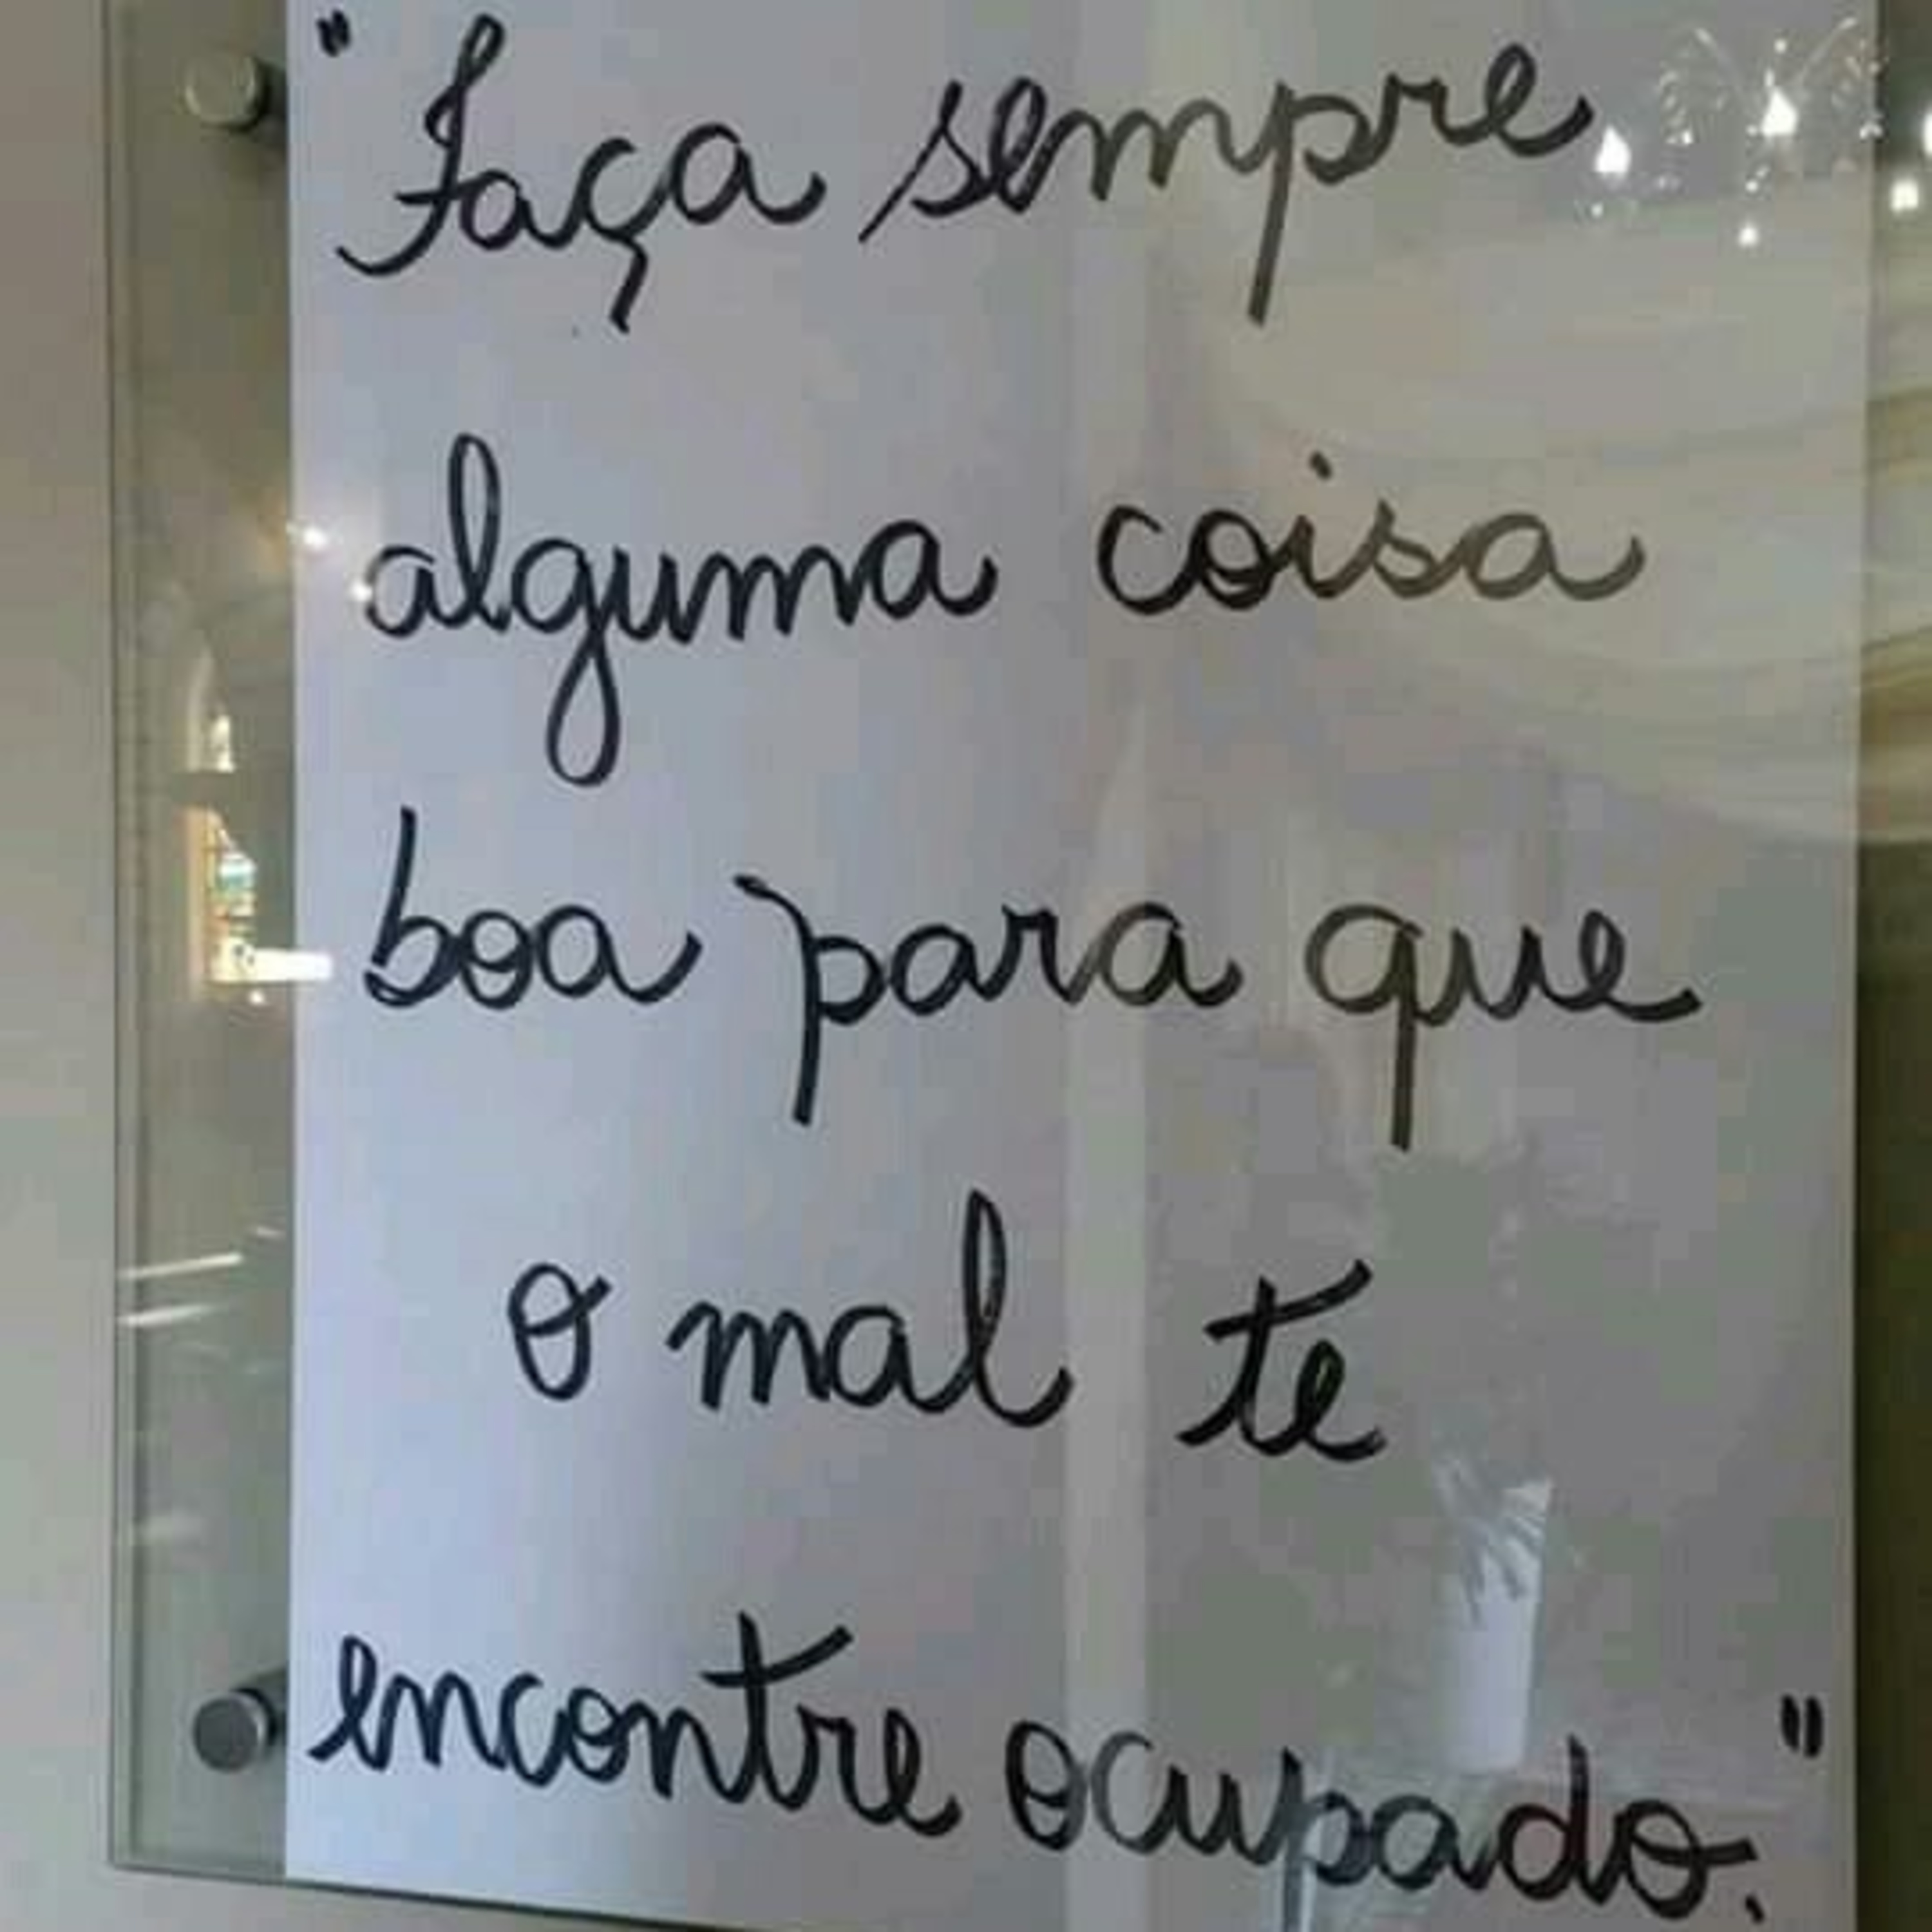 "Faça sempre
alguma coisa
boa para que
o mal te
encontre ocupado."